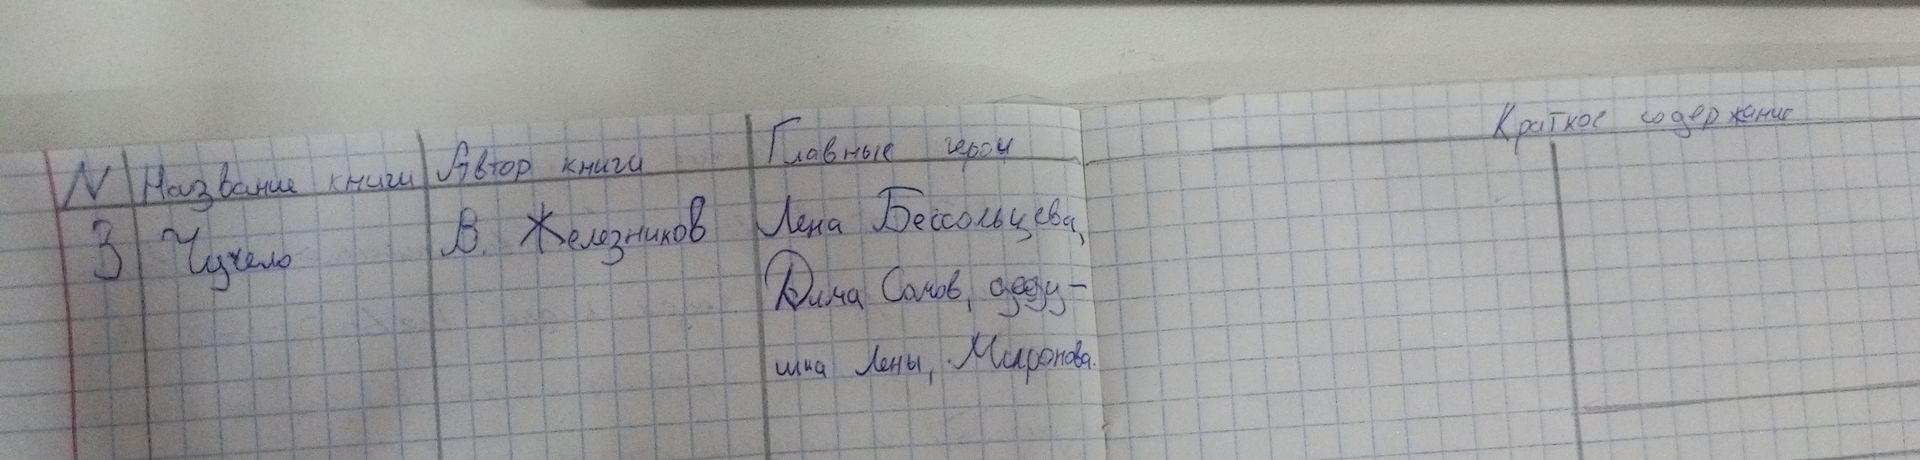 N Название книги Автор книги Главные герои Краткое содержание
3 Чучело В. Железников Лена Бессольцева,
Дима Сомов, деду-
шка Лены, Миронова.